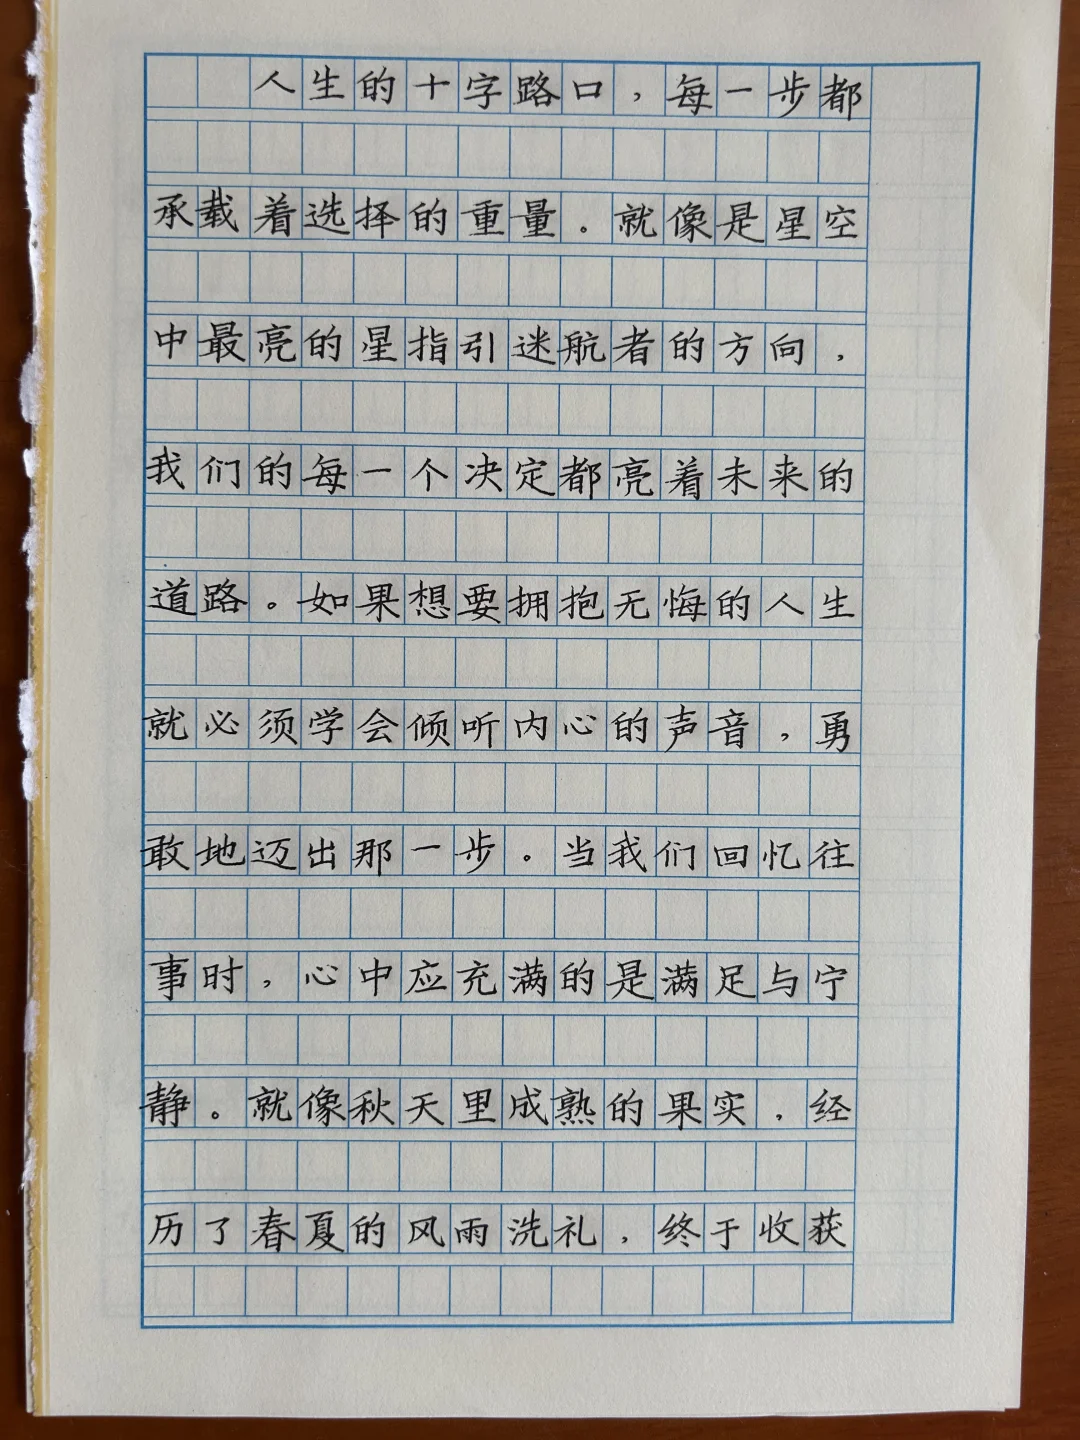 人生的十字路口，每一步都
承载着选择的重量。就像是星空
中最亮的星指引迷航者的方向，
我们的每一个决定都亮着未来的
道路。如果想要拥抱无悔的人生
就必须学会倾听内心的声音，勇
敢地迈出那一步。当我们回忆往
事时，心中应充满的是满足与宁
静。就像秋天里成熟的果实，经
历了春夏的风雨洗礼，终于收获